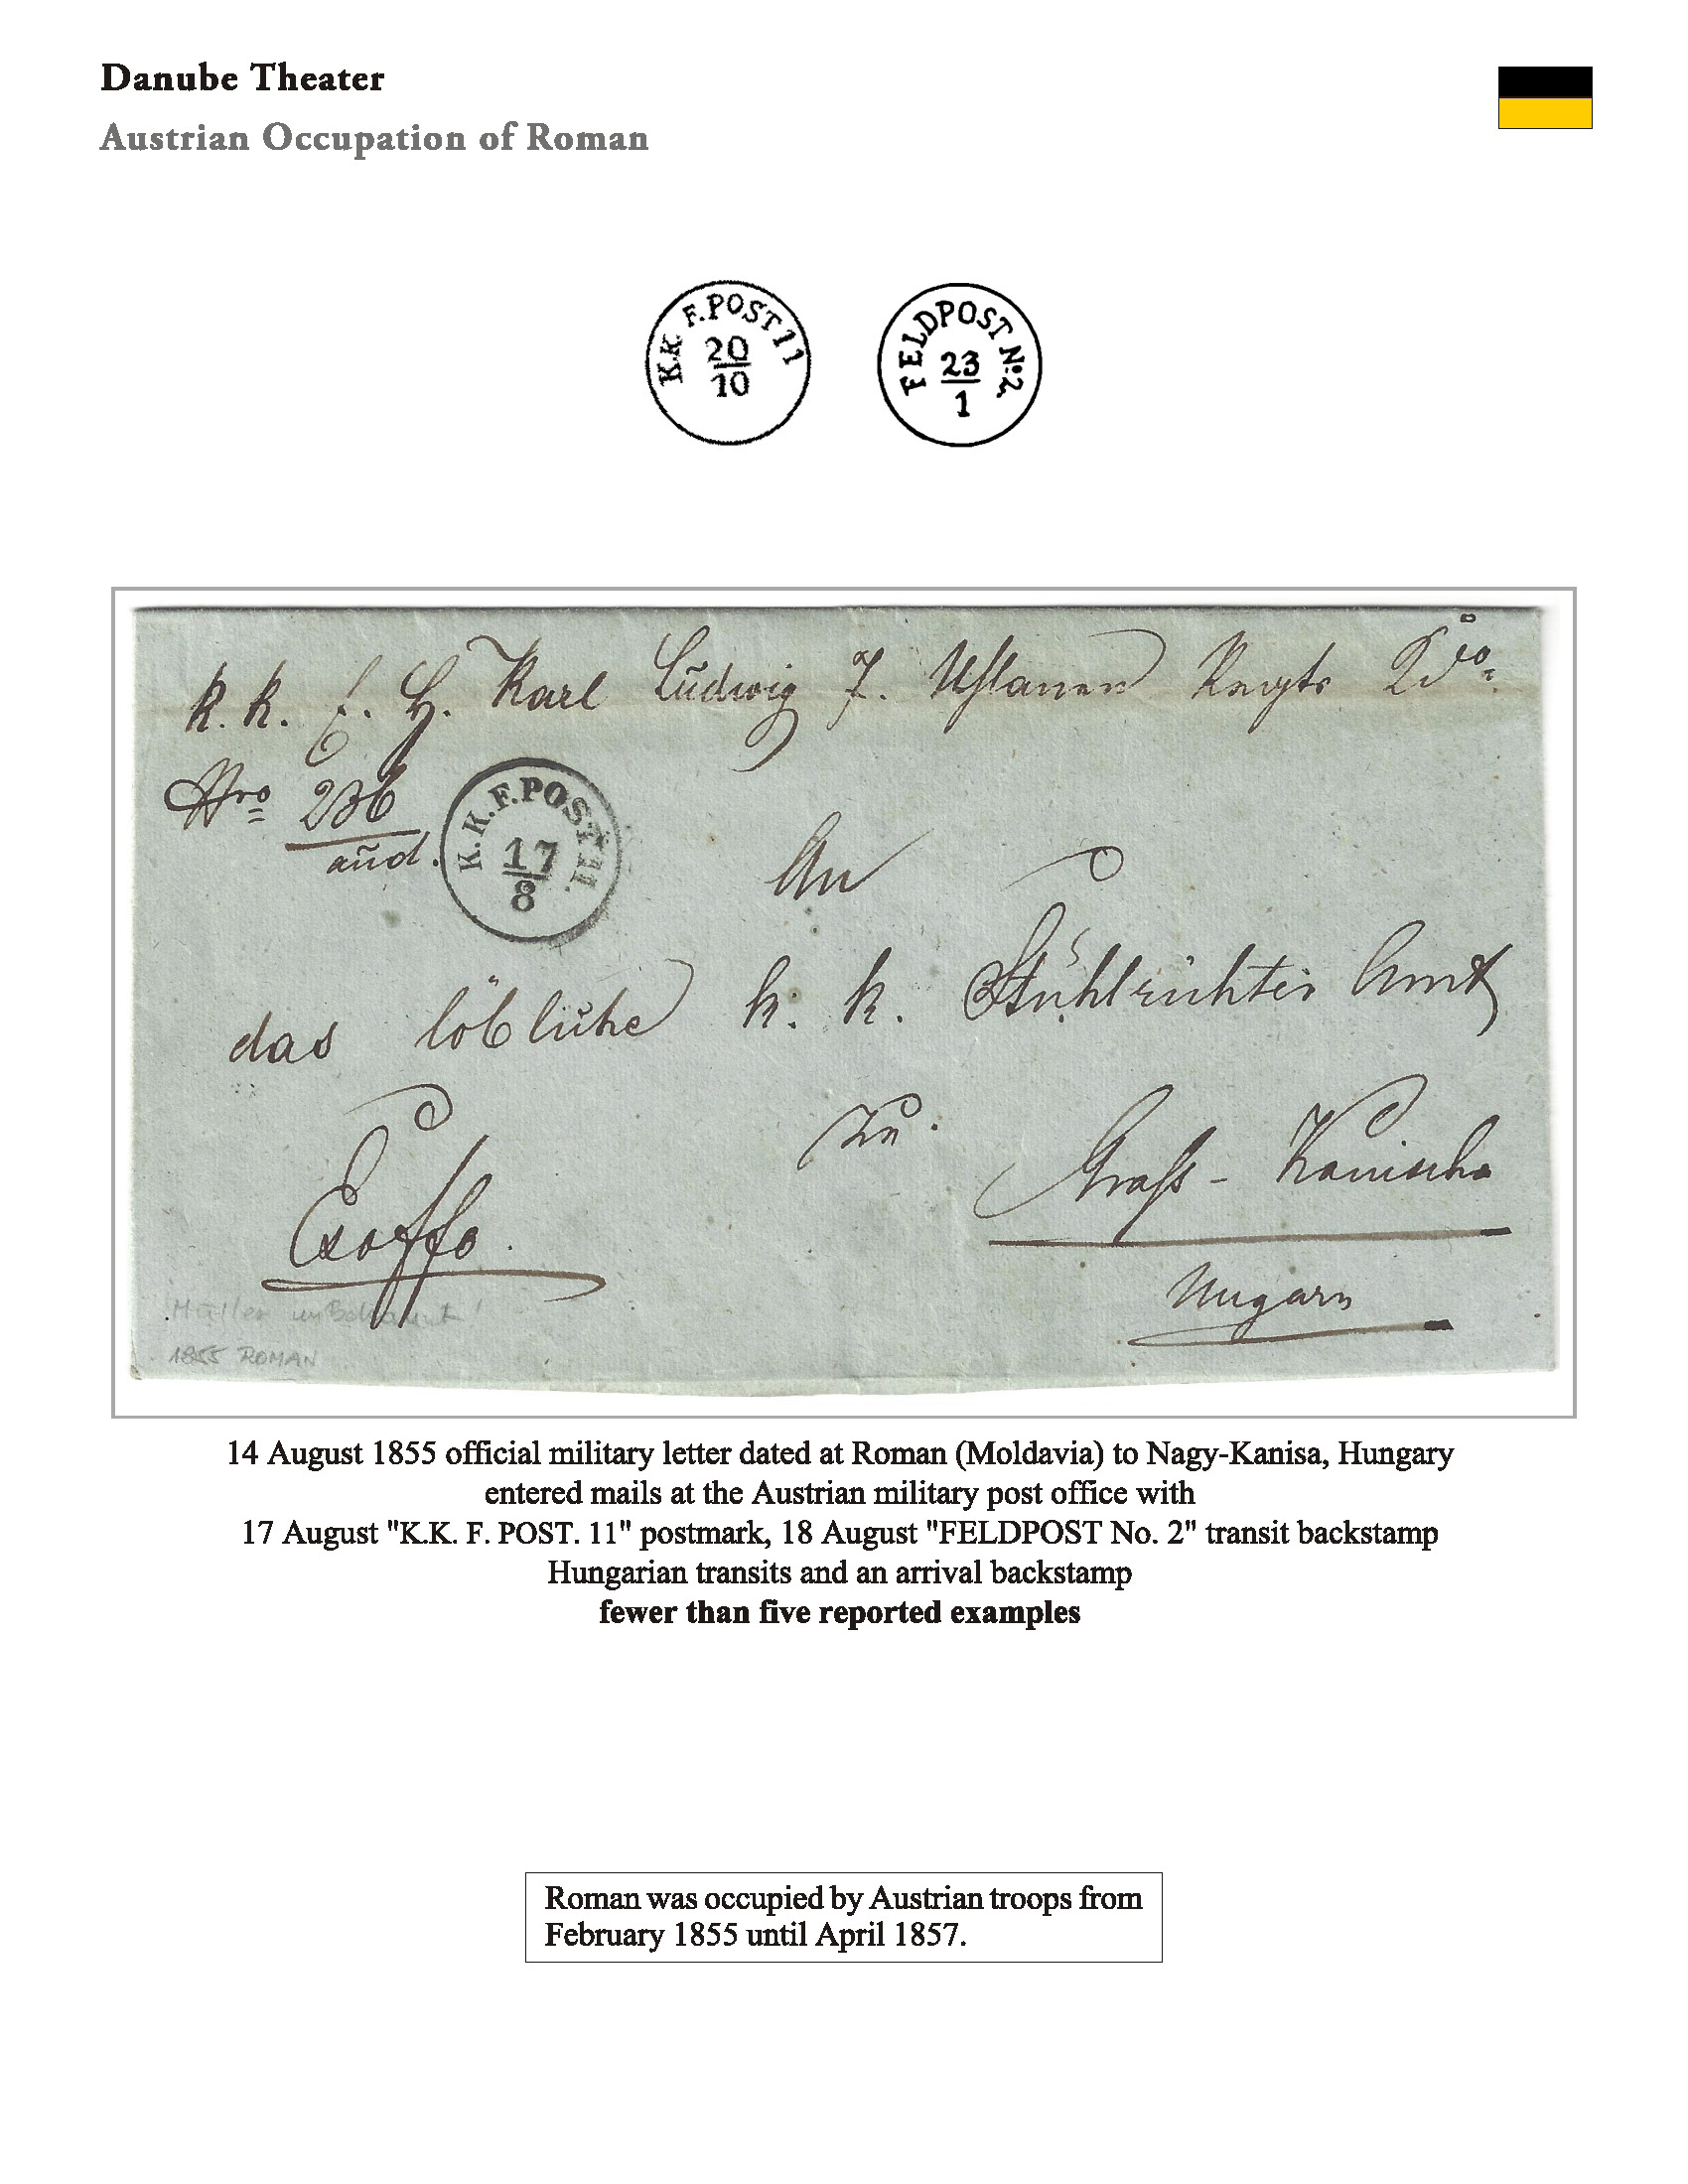 Danube Theater
Austrian Occupation of Roman
K.K. F.POST 11
20
10
FELDPOST No. 2
23
1
K. K. E. H. Karl Ludwig 7. Uhlanen Regts Kdo.
Nro 236
aud.
K.K.F.POST 11.
17
8
An
das löbliche k. k. Stuhlrichter Amt
zu.
Exoffo.
Groß-Kanischa
Ungarn
Müller unbekannt!
1855 ROMAN
14 August 1855 official military letter dated at Roman (Moldavia) to Nagy-Kanisa, Hungary
entered mails at the Austrian military post office with
17 August "K.K. F. POST. 11" postmark, 18 August "FELDPOST No. 2" transit backstamp
Hungarian transits and an arrival backstamp
fewer than five reported examples
Roman was occupied by Austrian troops from
February 1855 until April 1857.